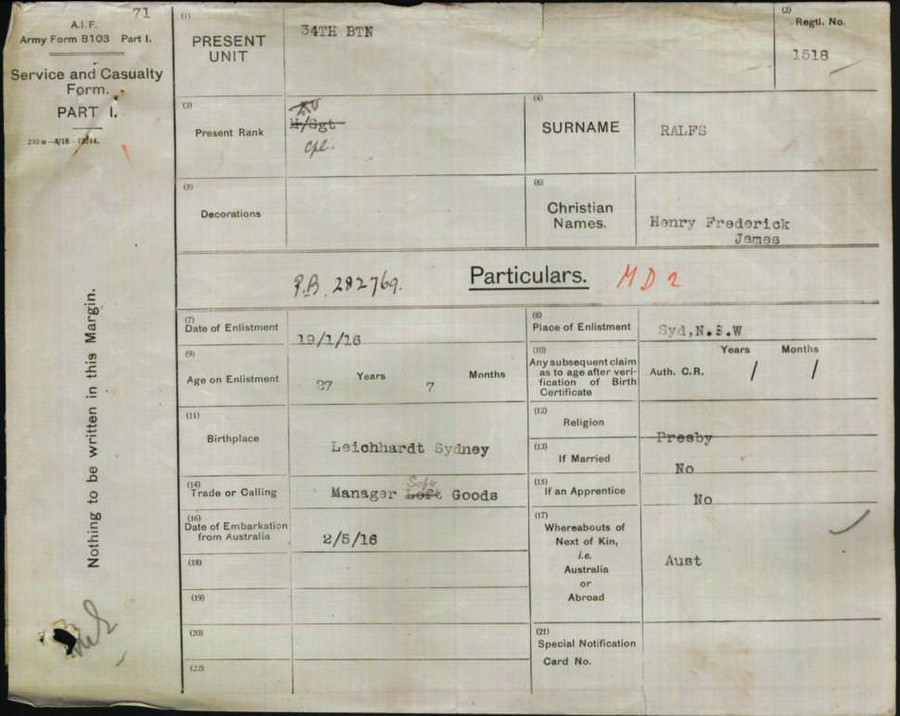 71
A.I.F.
Army Form B103 Part I.
Service and Casualty
Form.
PART I.
Nothing to be written in this Margin.
(1)
PRESENT
UNIT
34TH BTN
(2)
Regtl. No.
1518
(3)
Present Rank
Cpl.
(4)
SURNAME
RALFS
(5)
Decorations
(6)
Christian
Names.
Henry Frederick
James
P.B. 282769.
Particulars.
MD2
(7)
Date of Enlistment
19/1/16
(8)
Place of Enlistment
Syd,N.S.W
(9)
Age on Enlistment
Years
7
Months
(10)
Any subsequent claim
as to age after veri-
fication of Birth
Certificate
Auth. C.R.
Years
/
Months
/
(11)
Birthplace
Leichhardt Sydney
(12)
Religion
Presby
(13)
If Married
No
(14)
Trade or Calling
Soft
Manager Loft Goods
(15)
If an Apprentice
No
(16)
Date of Embarkation
from Australia
2/5/16
(17)
Whereabouts of
Next of Kin,
i.e.
Australia
or
Abroad
Aust
(18)
(19)
(20)
(21)
Special Notification
Card No.
(22)